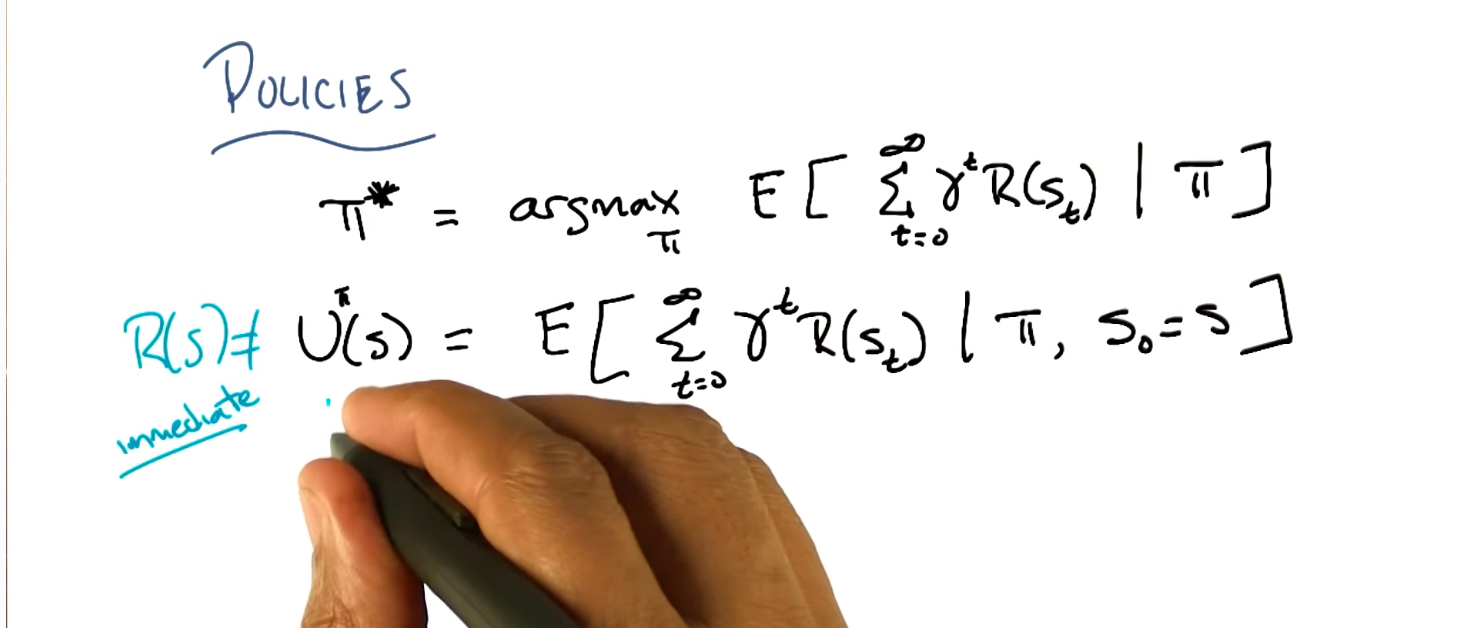 POLICIES
π* = argmax_π E[ ∑_{t=0}^∞ γ^t R(s_t) | π ]
R(s) ≠ U^π(s) = E[ ∑_{t=0}^∞ γ^t R(s_t) | π, s_0 = s ]
immediate